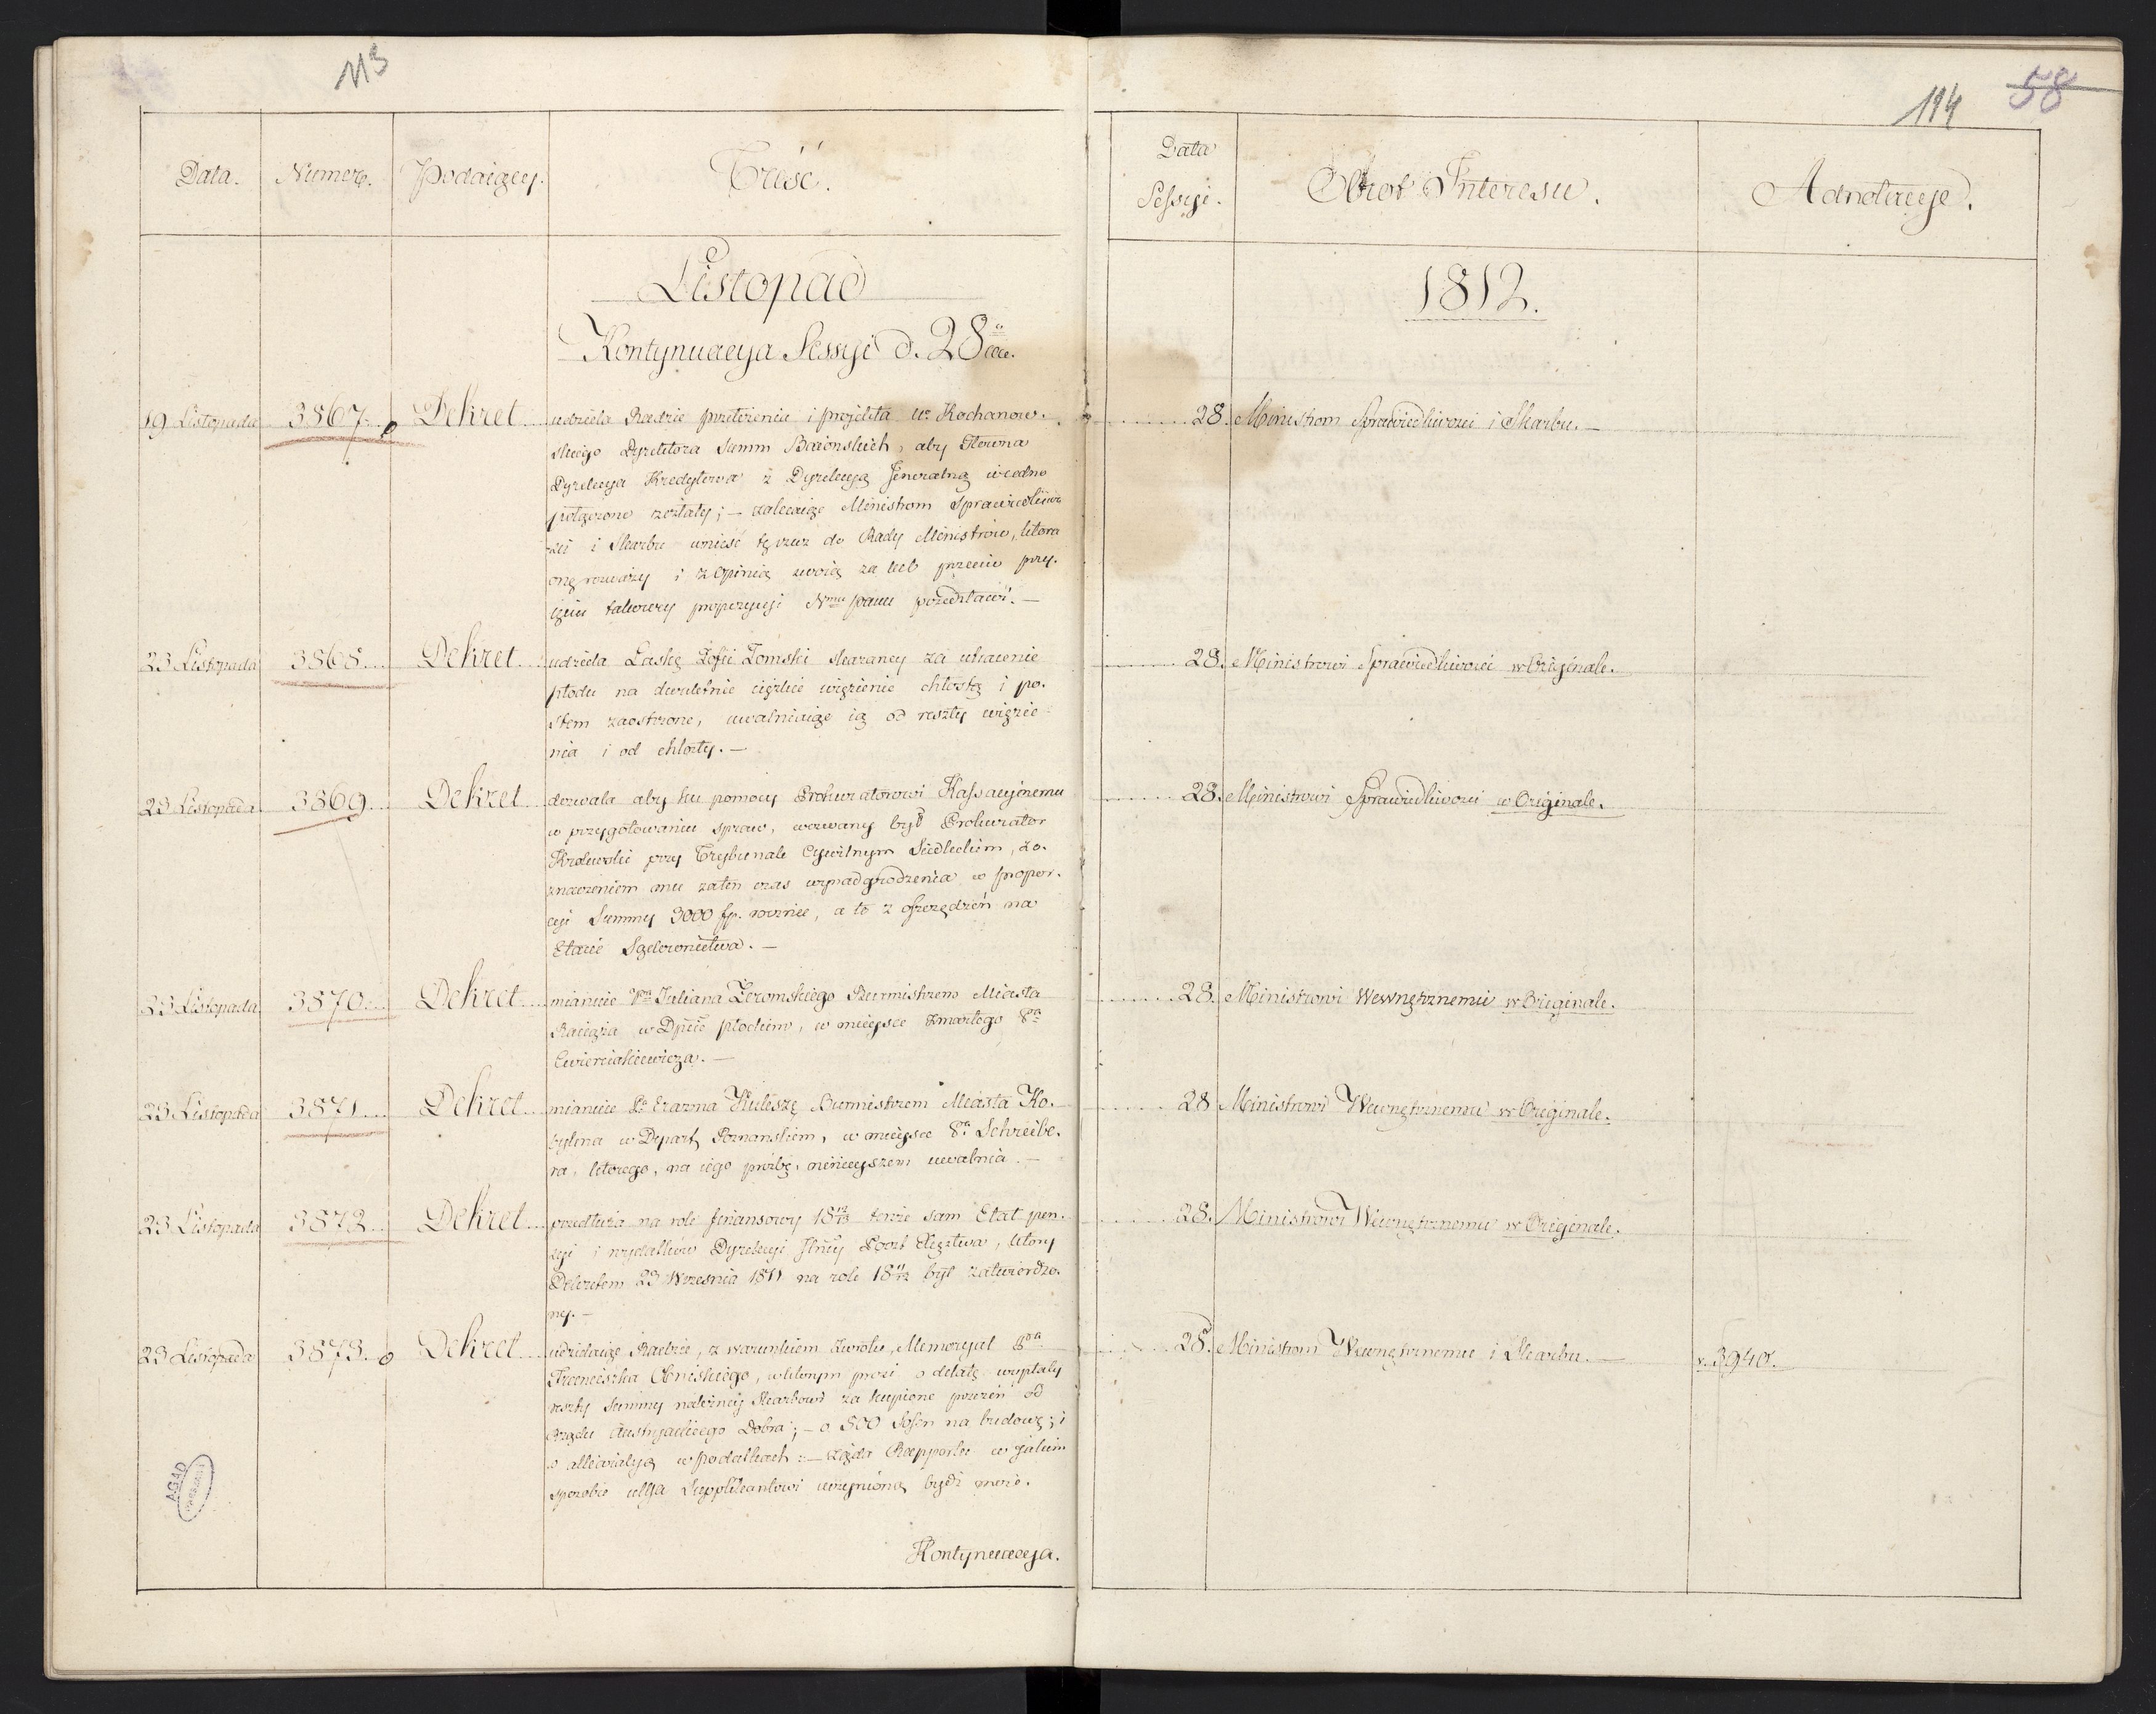 113
114 58
Data. Numer. Podaiący. Treść.
Data Sessyi. Obrot Interesu. Adnotacye.
Listopad
1812.
Kontynuacya Sessyi d. 28
19 Listopada 3867. Dekret udziela Radzie przełożenia i projekta Ur Kochanow-
skiego Dyrektora Summ Baiońskich, aby Główna
Dyrekcya Kredytowa z Dyrekcyą Jeneralną wiedno
połączone zostały; — zalecaiąc Ministrom Sprawiedliwo
ści i Skarbu wnieść tę rzecz do Rady Ministrów, która
onę rozważy i z Opinią swoią za lub przeciw przy-
ięciu takowey propozycyi Nmu Panu przedstawi. —
28. Ministrom Sprawiedliwości i Skarbu. —
23 Listopada 3868 Dekret udziela Łaskę Zofii Tomski skazaney za utracenie
płodu na dwuletnie ciężkie więzienie chłostą i po-
stem zaostrzone, uwalniaiąc ią od reszty więzie-
nia i od chłosty. —
28. Ministrowi Sprawiedliwości w Originale.
23 Listopada 3869 Dekret dozwala aby ku pomocy Prokuratorowi Kassacyjnemu
w przygotowaniu spraw, wezwany był Prokurator
Krolewski przy Trybunale Cywilnym Siedleckim, zo-
znaczeniem mu zaten czas wynadgrodzenia w propor-
cyi Summy 3000 fp. rocznie, a to z oszczędzeń na
Etacie Sądownictwa. —
28. Ministrowi Sprawiedliwości w Originale.
23 Listopada 3870 Dekret mianuie Pna Juliana Żeromskiego Burmistrzem Miasta
Raciąża w Dpcie płockim, w mieysce zmarłego
Cwierciakiewicza. —
28. Ministrowi Wewnętrznemu w Originale.
23 Listopada 3871 Dekret mianuie Pa Erazma Kuleszę Burmistrzem Miasta Ko-
bylina w Depart Poznanskiem, w mieysce Schreibe-
ra, ktorego, na iego prożbę, ninieyszem uwalnia. —
28 Ministrowi Wewnętrznemu w Originale.
23 Listopada 3872 Dekret przedłuża na rok finansowy 18 12/13 tenże sam Etat pen-
syi i wydatków Dyrekcyi Jlney Poczt Xięztwa, ktory
Dekretem 23 Wrzesnia 1811 na rok 18 11/12 był zatwierdzo-
ny. —
28. Ministrowi Wewnętrznemu w Originale.
23 Listopada 3873. Dekret udzielaiąc Radzie, z warunkiem zwrotu, Memoryał
Franciszka Obniskiego, wktorym prosi o delatę wypłaty
reszty Summy należney Skarbowi za kupione przezeń od
Rządu Austryackiego Dobra; — o 500 Sosen na budowę; i
o allewiatyą w podatkach: — żąda Rapportu w jakim
sposobie ulga Supplikantowi uczynioną bydż może.
28. Ministrom Wewnętrznemu i Skarbu. — v. 3940.
Kontynuacya.
AGAD